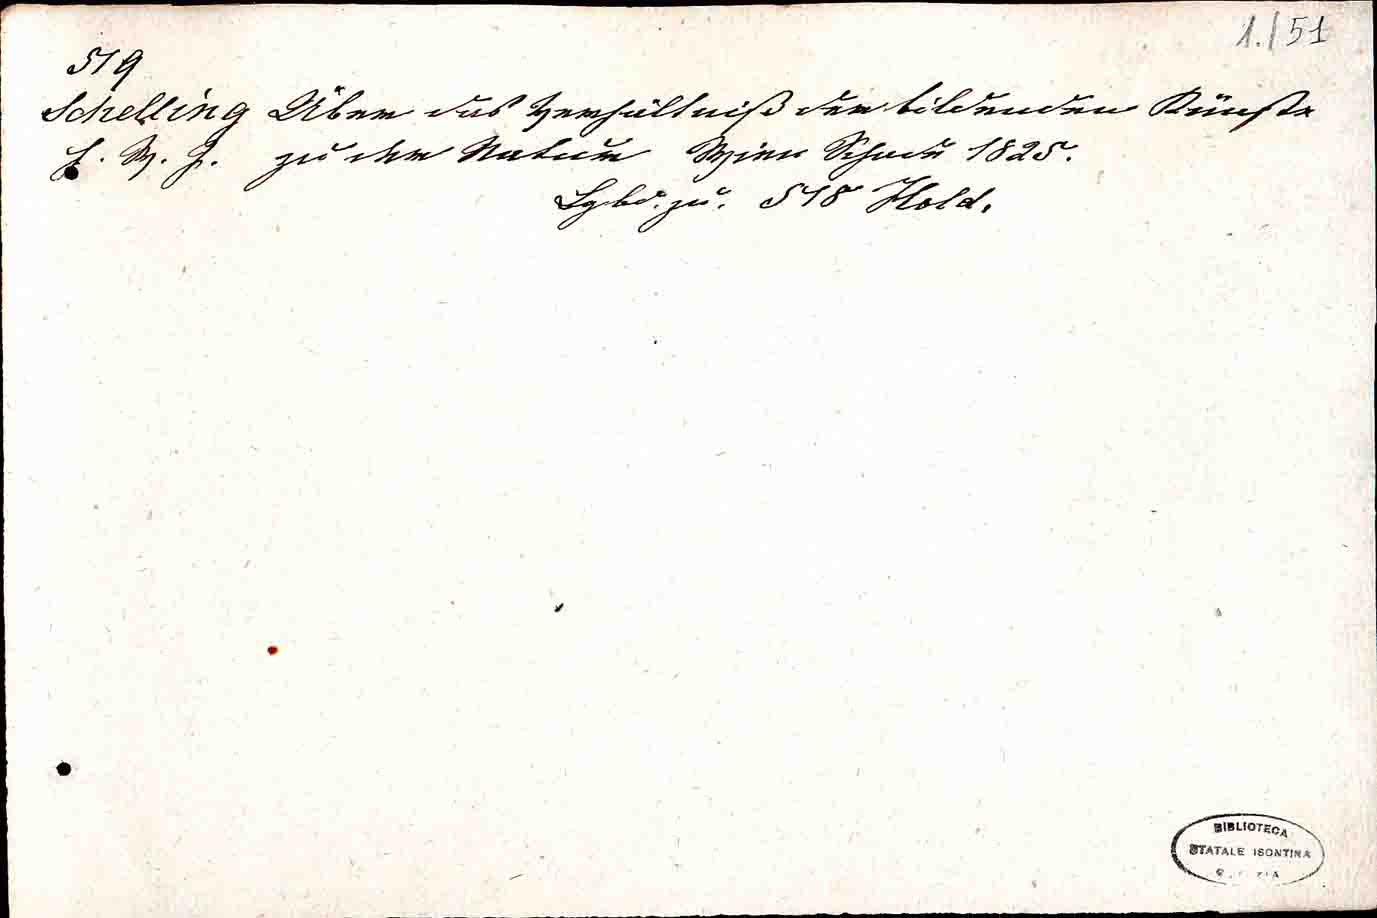 1./51
519
Schelling Über das Verhältniß der bildenden Künste
F. W. J. zu der Natur Wien Schade 1825.
zu. 518 Hold.
BIBLIOTECA
STATALE ISONTINA